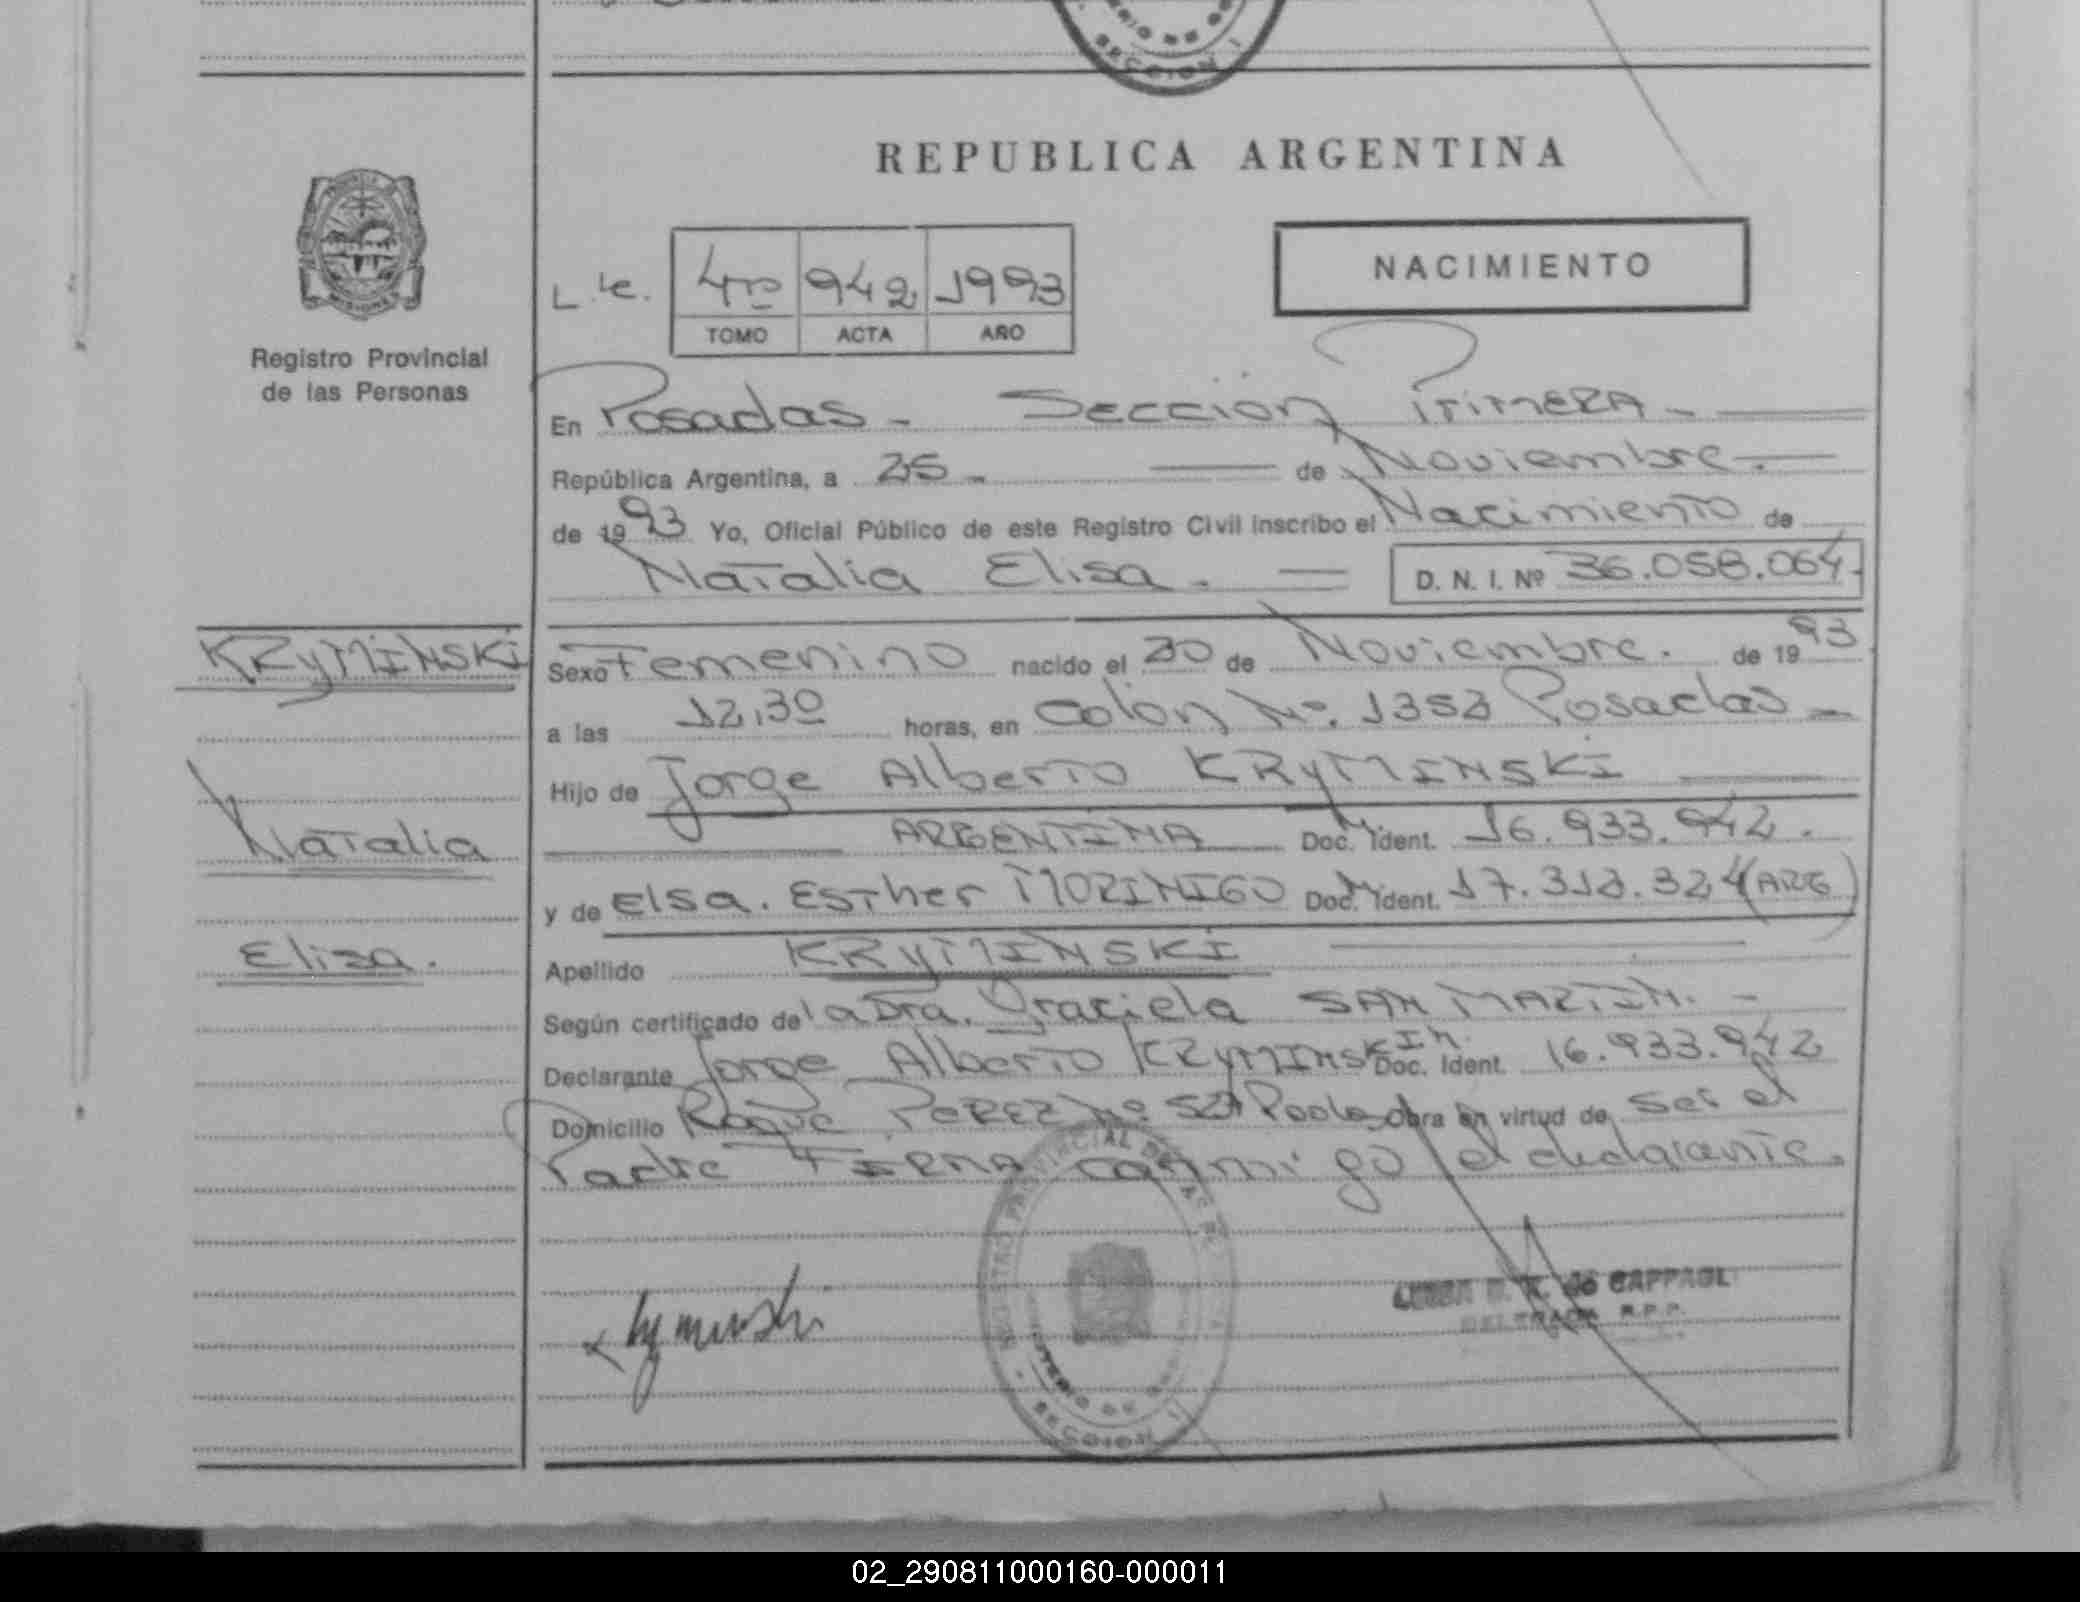 SECCION I
REPUBLICA ARGENTINA
NACIMIENTO
L.le. 4to 942 1993
TOMO ACTA AÑO
Registro Provincial
de las Personas
En Posadas - Sección Primera -
República Argentina, a 25 - de Noviembre.
de 1993 Yo, Oficial Público de este Registro Civil inscribo el Nacimiento de
Natalia Elisa. D. N. I. Nº 36.058.064.
KRYMINSKI
Natalia
Elisa.
Sexo Femenino nacido el 20 de Noviembre. de 1993
a las 12,30 horas, en Colón Nº. 1353 Posadas -
Hijo de Jorge Alberto KRYMINSKI
ARGENTINA Doc. Ident. 16.933.942.
y de Elsa. Esther MORINIGO Doc. Ident. 17.313.324 (ARG)
Apellido KRYMINSKI
Según certificado de la Dra. Graciela SAN MARTIN. -
Declarante Jorge Alberto KRYMINSKI Doc. Ident. 16.933.942
Domicilio Roque PEREZ Nº Obra en virtud de ser el
Padre FIRMA conmigo el declarante.
SECCION I
de CAPPAGLI
R.P.P.
02_290811000160-000011